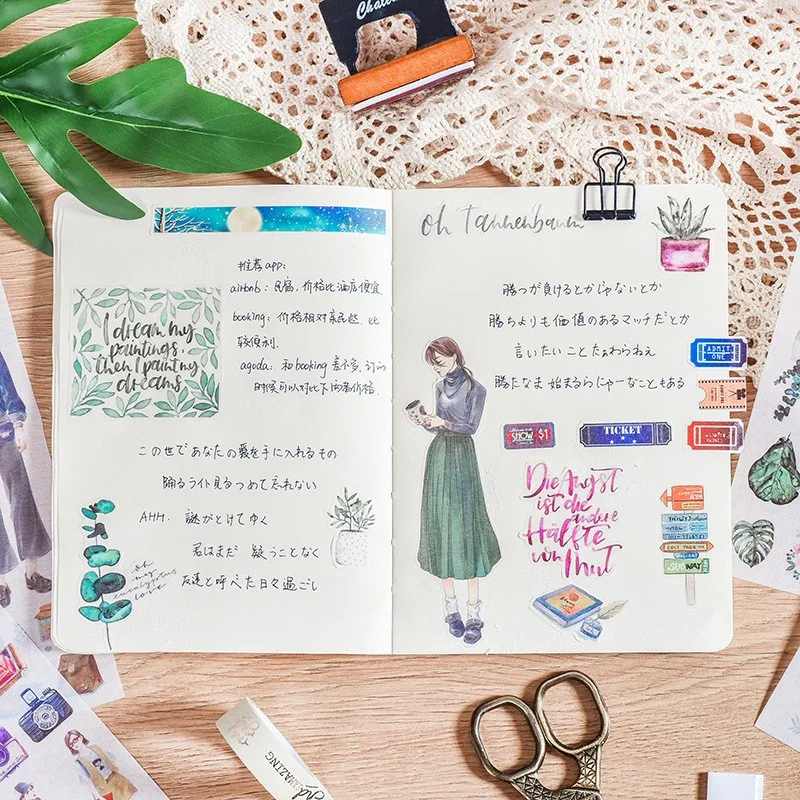 推荐app:
airbnb: 民宿,价格比酒店便宜
booking: 价格相对亲民些,比
较便利.
agoda: 和booking差不多,订的
时候可以对比下两者价格.
I dream my
paintings,
then I paint my
dreams
この世であなたの愛を手に入れるもの
踊るライト見つめて忘れない
AHH. 謎がとけてゆく
君はまだ 疑うことなく
友達と呼べた日々過ごし
oh
my
eucalyptus
love
oh Tannenbaum
勝つが負けるとかじゃないとか
勝ちよりも価値のあるマッチだとか
言いたいこと
勝たなま 始まるらにゃーなこともある
ADMIT
ONE
SHOW $1
TICKET
Die Angst
ist die
andere
Hälfte
von Mut
EAST PARK
SUBWAY
AMAZING